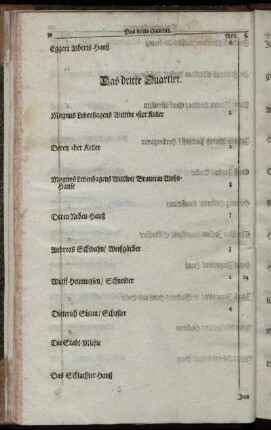 Das dritte Quartier.
Rthl. ß.
Eggert Alberts-Hauß
Das dritte Quartier.
Magnus Levenhagens Wittwe 1ster Keller 2
Deren 2der Keller 2
Magnus Levenhagens Wittwe/ Brauerin Wohn-
Hause 8
Deren Neben-Hauß
Andreas Schwahn/ Weißgärber 3
Wulff Henningsen/ Schneider 2 24
Dieterich Sütau/ Schuster
Die Stadt-Mühle
Das Schlachter-Hauß
Jens